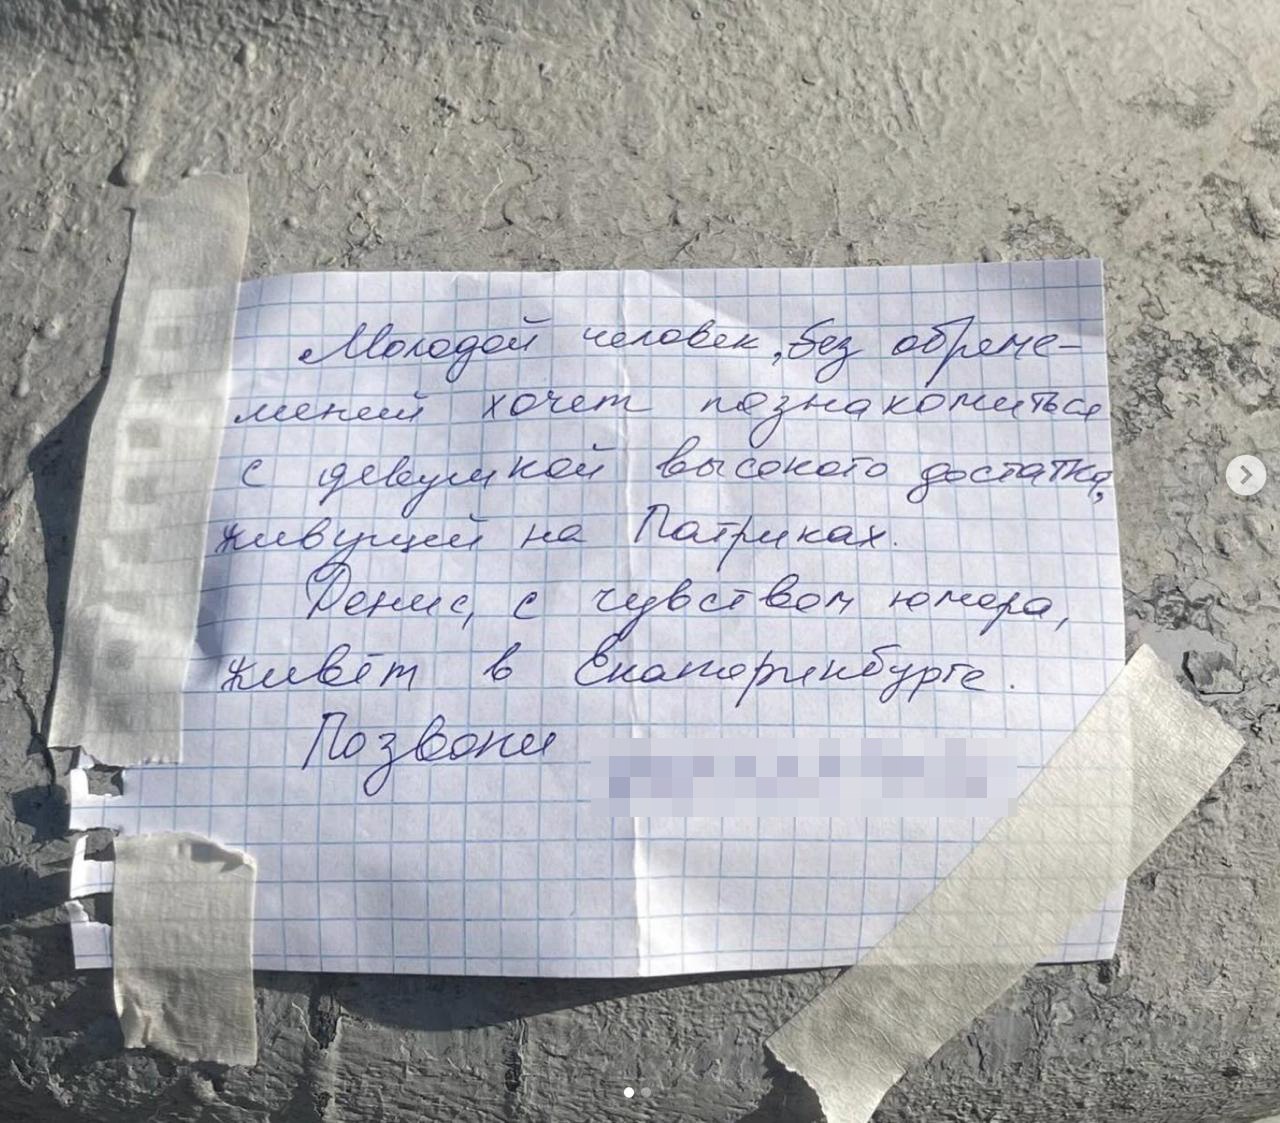 Молодой человек, без обреме-
мений хочет познакомиться
с девушкой высокого достатка,
живущей на Патриках.
Денис, с чувством юмора,
живёт в Екатеринбурге.
Позвони